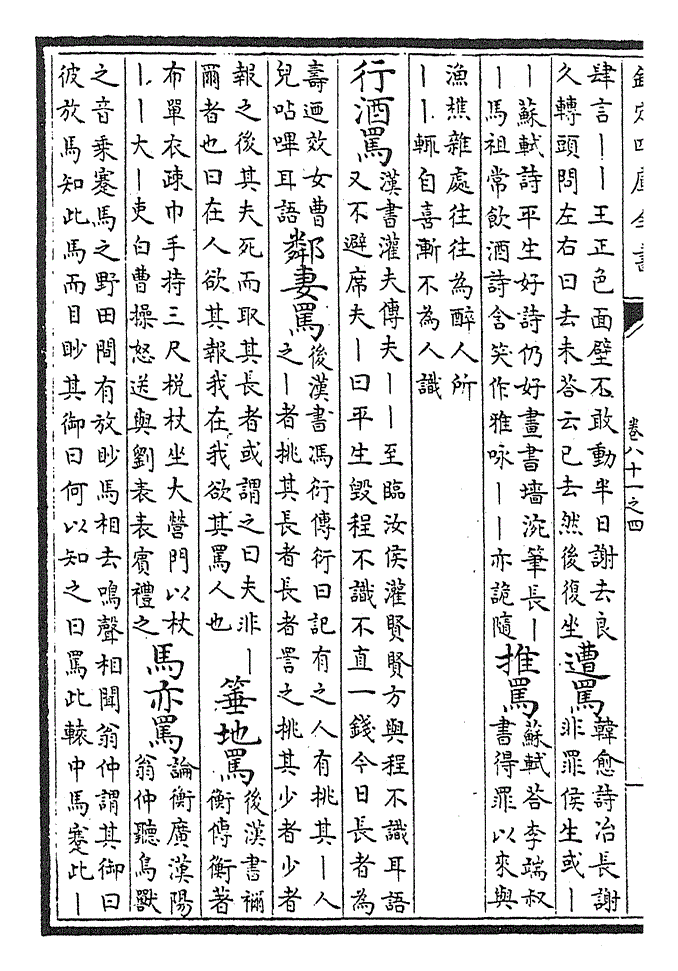 欽定四庫全書
卷八十一之四
肆言丨丨王正色面壁不敢動半日謝去良
久轉頭問左右曰去未荅云已去然後復坐
遭罵
韓愈詩冶長謝
非罪侯生或丨
丨蘇軾詩平生好詩仍好畫書墻涴筆長丨
丨馬祖常飲酒詩含笑作雅咏丨丨亦詭隨
推罵
蘇軾荅李端叔
書得罪以來與
漁樵雜處往往為醉人所
丨丨輒自喜漸不為人識
行酒罵
漢書灌夫傳夫丨丨至臨汝侯灌賢賢方與程不識耳語
又不避席夫丨曰平生毀程不識不直一錢今日長者為
壽迺效女曹
兒呫嗶耳語
鄰妻罵
後漢書馮衍傳衍曰記有之人有挑其丨人
之丨者挑其長者長者詈之挑其少者少者
報之後其夫死而取其長者或謂之曰夫非丨
爾者也曰在人欲其報我在我欲其罵人也
箠地罵
後漢書禰
衡傳衡著
布單衣疎巾手持三尺梲杖坐大營門以杖
丨丨大丨吏白曹操怒送與劉表表賓禮之
馬亦罵
論衡廣漢陽
翁仲聽鳥獸
之音乗蹇馬之野田間有放眇馬相去鳴聲相聞翁仲謂其御曰
彼放馬知此馬而目眇其御曰何以知之曰罵此轅中馬蹇此丨